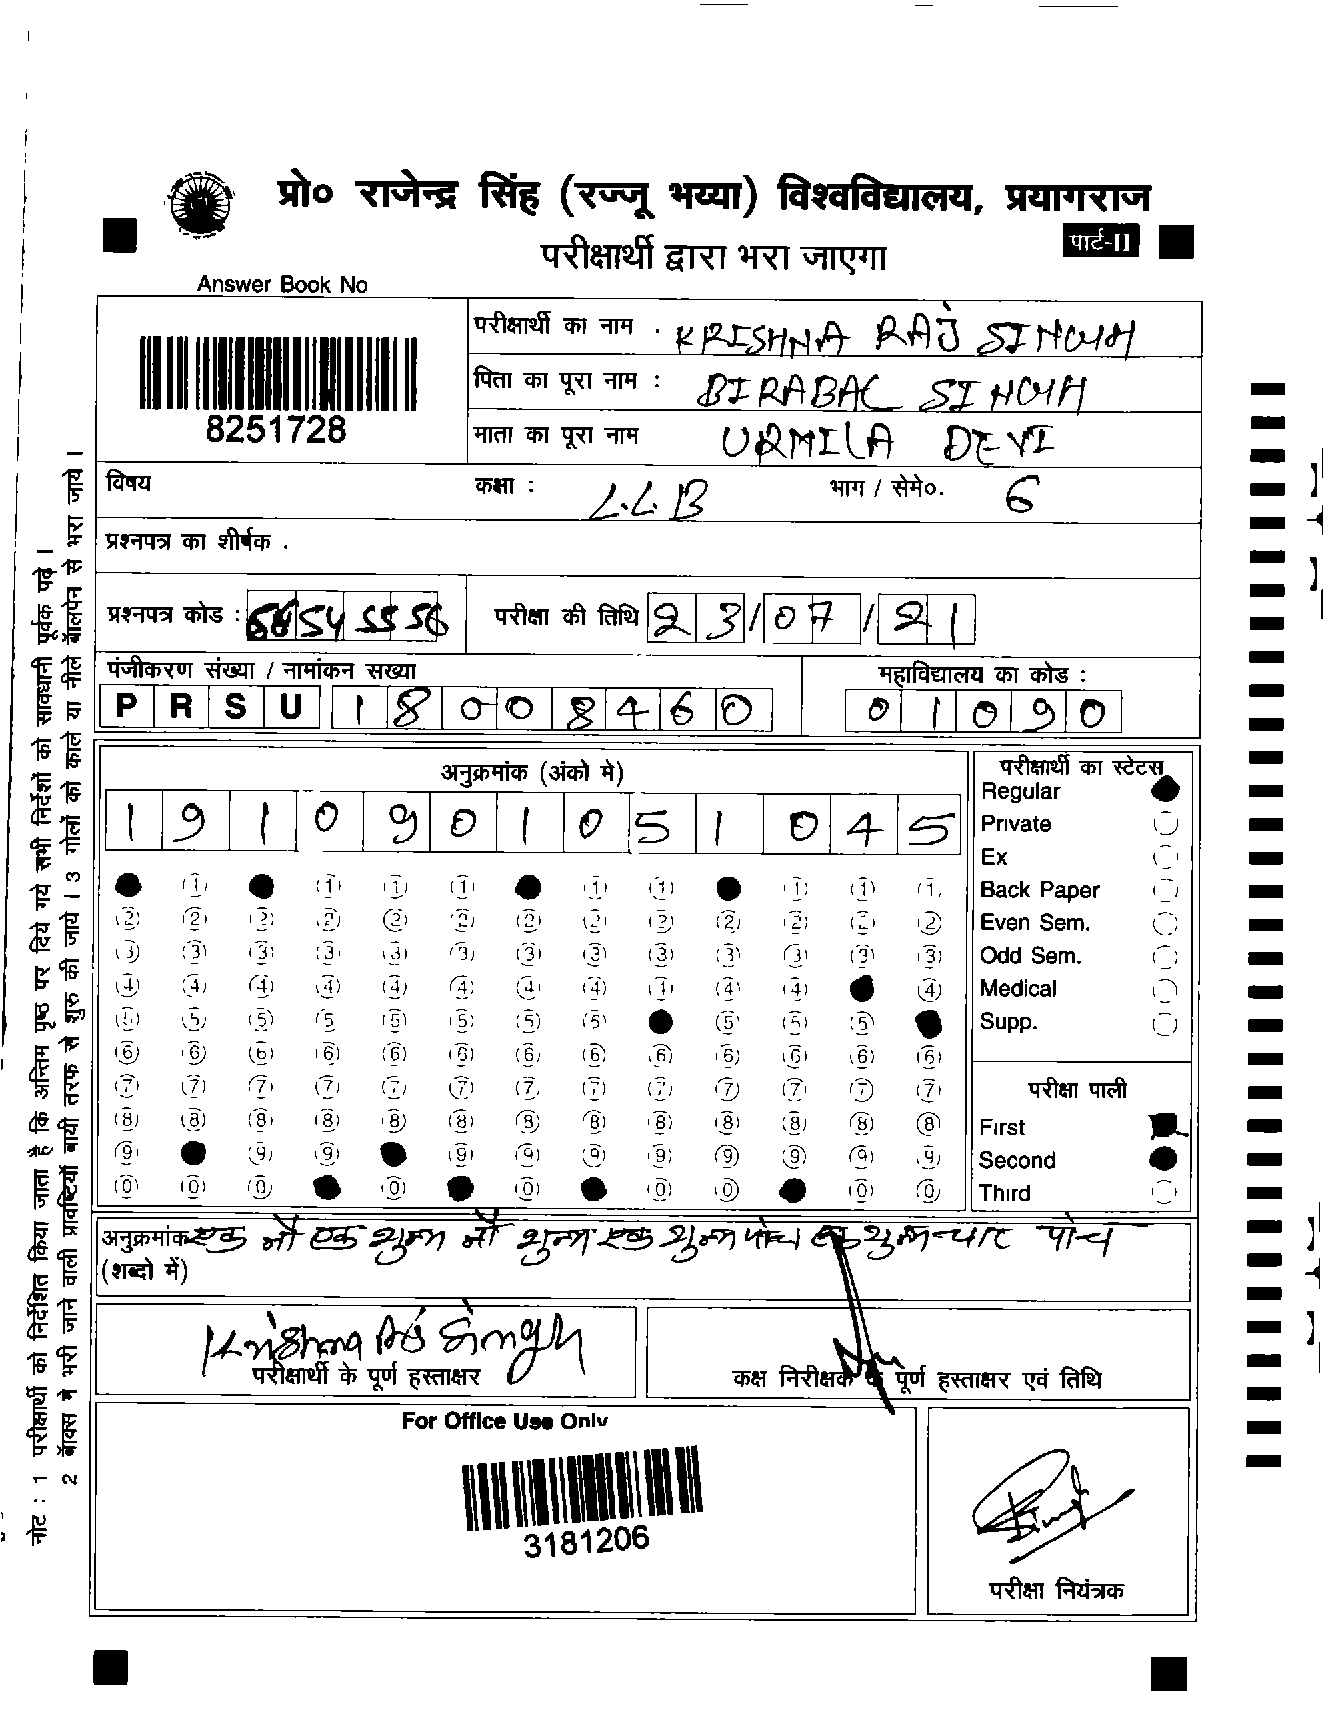 प्रो० राजेन्द्र सिंह (रज्जू भय्या) विश्वविद्यालय, प्रयागराज
परीक्षार्थी द्वारा भरा जाएगा
पार्ट-II
Answer Book No
8251728
परीक्षार्थी का नाम . KRISHNA RAJ SINGH
पिता का पूरा नाम : BIRABAL SINGH
माता का पूरा नाम URMILA DEVI
विषय कक्षा : L.L.B भाग / सेमे०. 6
प्रश्नपत्र का शीर्षक .
प्रश्नपत्र कोड : 54 55 56 परीक्षा की तिथि 23/07/21
पंजीकरण संख्या / नामांकन सख्या महाविद्यालय का कोड :
P R S U 1 8 0 0 8 4 6 0 0 1 0 9 0
अनुक्रमांक (अंको मे)
1 9 1 0 9 0 1 0 5 1 0 4 5
1 1 1 1 1 1 1 1 1
2 2 2 2 2 2 2 2 2 2 2 2 2
3 3 3 3 3 3 3 3 3 3 3 3 3
4 4 4 4 4 4 4 4 4 4 4 4
5 5 5 5 5 5 5 5 5 5 5
6 6 6 6 6 6 6 6 6 6 6 6 6
7 7 7 7 7 7 7 7 7 7 7 7 7
8 8 8 8 8 8 8 8 8 8 8 8 8
9 9 9 9 9 9 9 9 9 9 9
0 0 0 0 0 0 0 0 0
परीक्षार्थी का स्टेटस
Regular
Private
Ex
Back Paper
Even Sem.
Odd Sem.
Medical
Supp.
परीक्षा पाली
First
Second
Third
अनुक्रमांक एक नौ एक शुन्य नौ शुन्य एक शुन्य पांच एक शुन्य चार पांच
(शब्दो में)
Krishna Raj Singh
परीक्षार्थी के पूर्ण हस्ताक्षर
कक्ष निरीक्षक के पूर्ण हस्ताक्षर एवं तिथि
For Office Use Only
3181206
परीक्षा नियंत्रक
नोट : 1 परीक्षार्थी को निर्देशित किया जाता है कि अन्तिम पृष्ठ पर दिये गये सभी निर्देशों को सावधानी पूर्वक पढ़े ।
2 बॉक्स में भरी जाने वाली प्रविष्टियाँ बायी तरफ से शुरु की जाये । 3 गोलों को काले या नीले बॉलपेन से भरा जाये ।